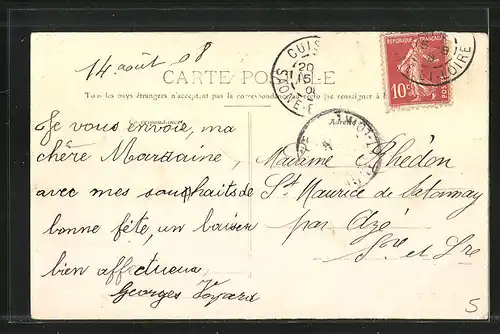 14 août 08
CARTE POSTALE
Tous les pays étrangers n'acceptent pas la correspondance au
Correspondance
Adresse
RÉPUBLIQUE FRANÇAISE
10c
CUIS
20
15
08
SAONE-
LOIRE
Je vous envoie, ma
chère Marraine,
avec mes souhaits de
bonne fête, un baiser
bien affectueux,
Georges
Madame Rhédon
St Maurice de Satonnay
par Azé
Sne et Lre
5